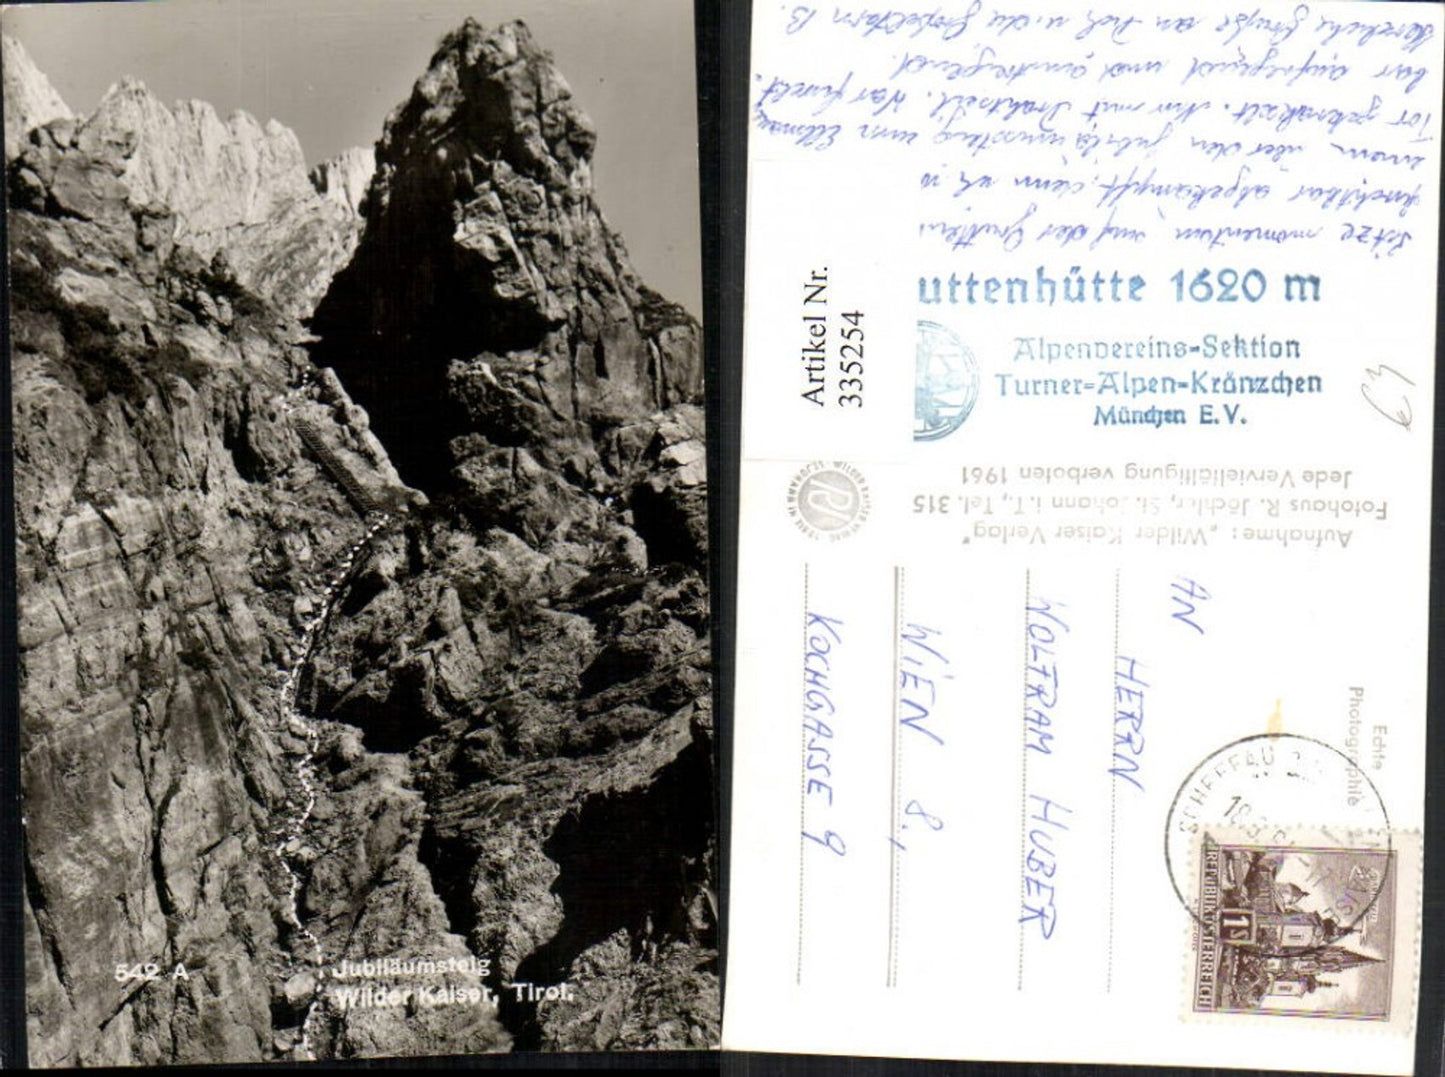 542 A
Jubiläumsteig
Wilder Kaiser, Tirol.
Sitze momentan auf der Grutten
furchtbar abgekämpft, denn ich
über den Jubiläumssteig zum Ellmauer
Tor gekraxelt. Nur mit Drahtseil. War furcht
bar aufregend und anstrengend.
Herzliche Grüße an Dich u. die Großeltern B.
uttenhütte 1620 m
Alpenvereins-Sektion
Turner-Alpen-Kränzchen
München E.V.
Artikel Nr.
335254
€3
Aufnahme: „Wilder Kaiser Verlag"
Fotohaus R. Jöchler, St. Johann i. T., Tel. 315
Jede Vervielfältigung verboten 1961
AN
HERRN
WOLFRAM HUBER
WIEN 8.,
KOCHGASSE 9
Echte
Photographie
SCHEFFAU
REPUBLIK ÖSTERREICH
1 S